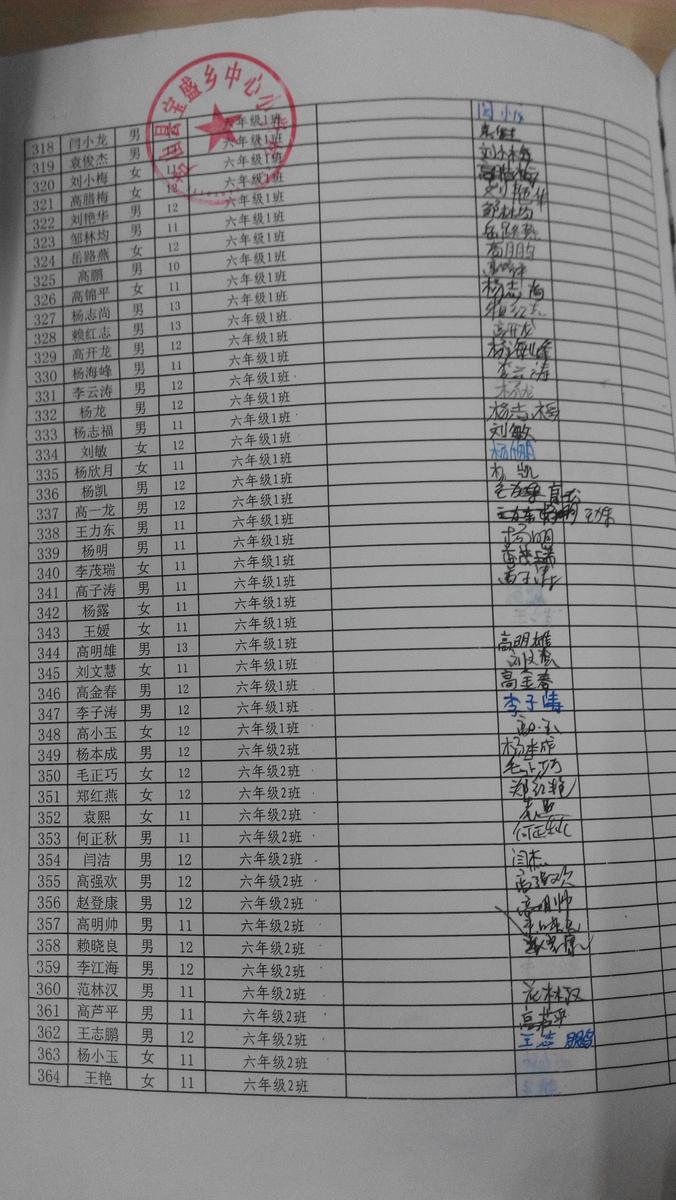 宝盛乡中心小
318 闫小龙 男 六年级1班 闫小龙
319 袁俊杰 男 六年级1班
320 刘小梅 女 11 六年级1班 刘小梅
321 高腊梅 女 12 六年级1班 高腊梅
322 刘艳华 男 12 六年级1班 刘艳华
323 邹林均 男 11 六年级1班 邹林均
324 岳路燕 女 12 六年级1班 岳路燕
325 高鹏 男 10 六年级1班 高鹏
326 高锦平 女 11 六年级1班
327 杨志尚 男 13 六年级1班 杨志尚
328 赖红志 男 13 六年级1班 赖红志
329 高开龙 男 12 六年级1班 高开龙
330 杨海峰 男 11 六年级1班 杨海峰
331 李云涛 男 12 六年级1班 李云涛
332 杨龙 男 12 六年级1班 杨龙
333 杨志福 男 11 六年级1班 杨志福
334 刘敏 女 12 六年级1班 刘敏
335 杨欣月 女 11 六年级1班
336 杨凯 男 12 六年级1班 杨凯
337 高一龙 男 12 六年级1班
338 王力东 男 11 六年级1班 王力东
339 杨明 男 11 六年级1班 杨明
340 李茂瑞 女 11 六年级1班
341 高子涛 男 11 六年级1班 高子涛
342 杨露 女 11 六年级1班
343 王媛 女 11 六年级1班
344 高明雄 男 13 六年级1班 高明雄
345 刘文慧 女 11 六年级1班 刘文慧
346 高金春 男 12 六年级1班 高金春
347 李子涛 男 12 六年级1班 李子涛
348 高小玉 女 12 六年级1班 高小玉
349 杨本成 男 12 六年级2班 杨本成
350 毛正巧 女 12 六年级2班 毛正巧
351 郑红燕 女 12 六年级2班 郑红艳
352 袁熙 女 11 六年级2班
353 何正秋 男 11 六年级2班 何正秋
354 闫洁 男 12 六年级2班 闫杰
355 高强欢 男 12 六年级2班 高强欢
356 赵登康 男 12 六年级2班 高明帅
357 高明帅 男 11 六年级2班
358 赖晓良 男 12 六年级2班
359 李江海 男 12 六年级2班
360 范林汉 男 11 六年级2班 范林汉
361 高芦平 男 11 六年级2班 高芦平
362 王志鹏 男 12 六年级2班 王志鹏
363 杨小玉 女 11 六年级2班
364 王艳 女 11 六年级2班